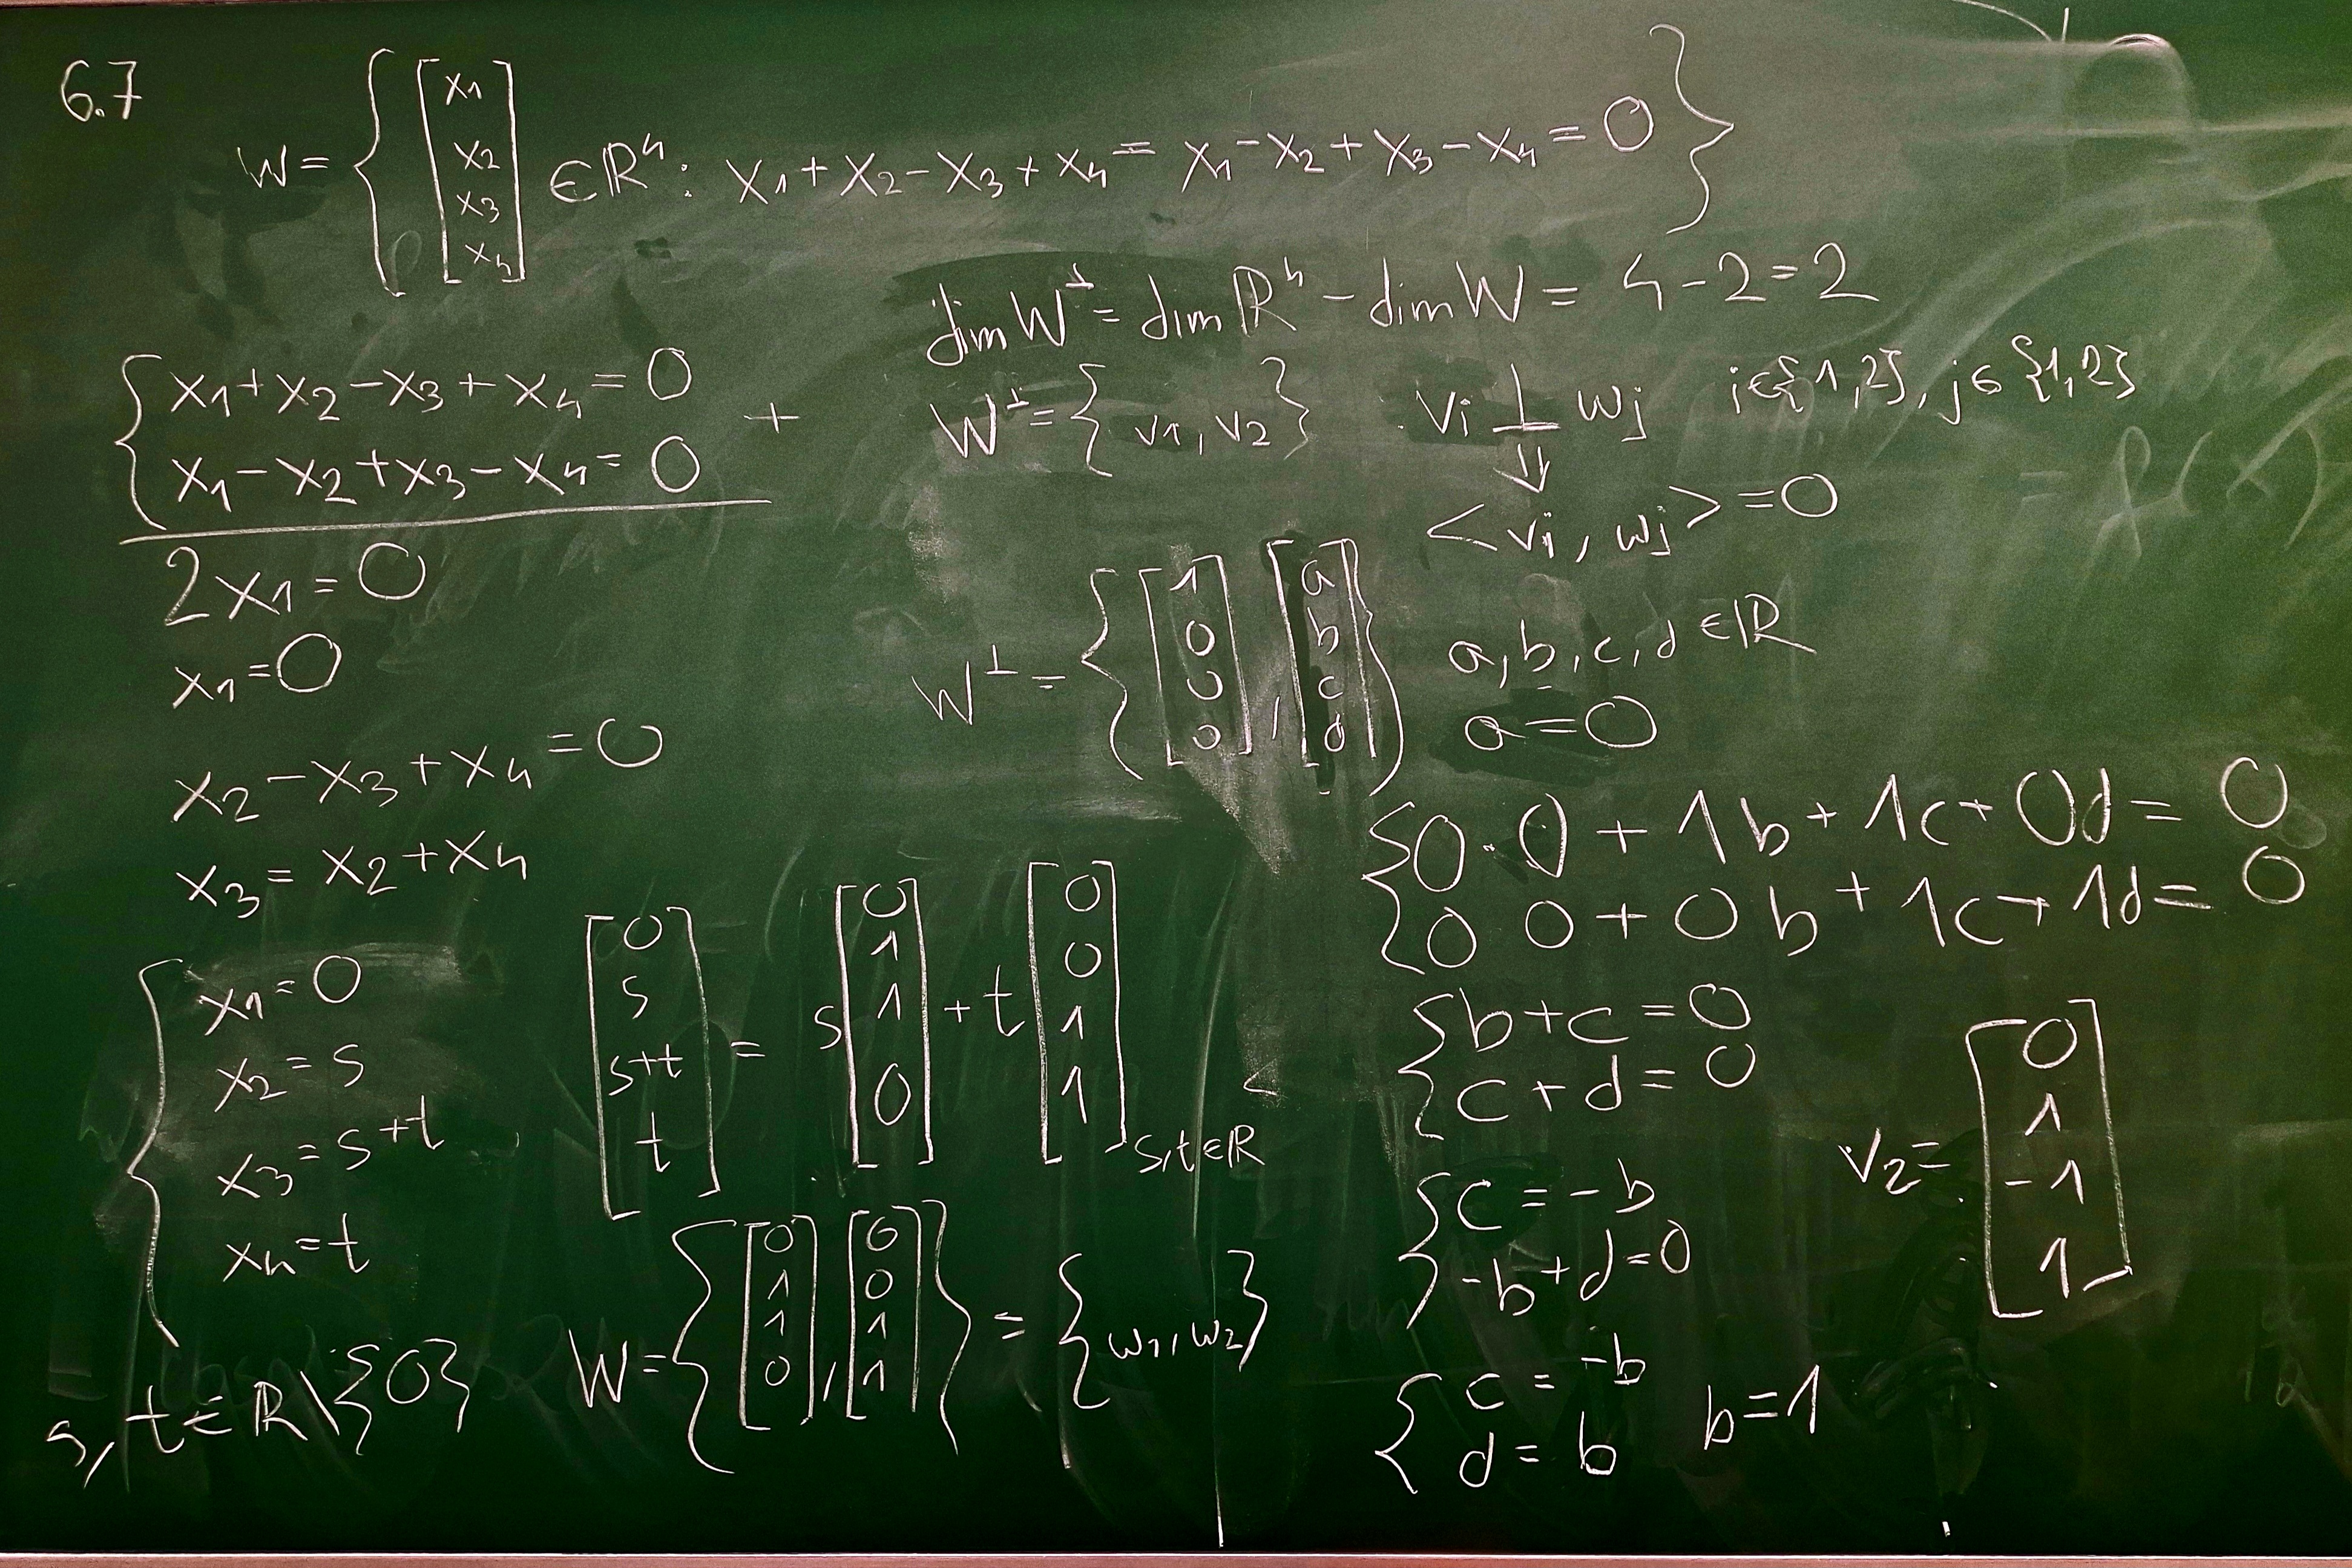 6.7
W = { [ x1 x2 x3 x4 ] ∈ ℝ⁴ : x1 + x2 - x3 + x4 = x1 - x2 + x3 - x4 = 0 }
{ x1 + x2 - x3 + x4 = 0
x1 - x2 + x3 - x4 = 0 +
2x1 = 0
x1 = 0
x2 - x3 + x4 = 0
x3 = x2 + x4
{ x1 = 0
x2 = s
x3 = s+t
x4 = t
s, t ∈ ℝ \ {0}
[ 0 s s+t t ] = s [ 0 1 1 0 ] + t [ 0 0 1 1 ] s,t ∈ ℝ
W = { [ 0 1 1 0 ] , [ 0 0 1 1 ] } = { w1, w2 }
dim W⊥ = dim ℝ⁴ - dim W = 4 - 2 = 2
W⊥ = { v1, v2 } vi ⊥ wj i ∈ {1,2}, j ∈ {1,2}
⇓
< vi, wj > = 0
W⊥ = { [ 1 0 0 0 ] , [ a b c d ] } a, b, c, d ∈ ℝ
a = 0
{ 0 · 0 + 1b + 1c + 0d = 0
0 0 + 0b + 1c + 1d = 0
{ b + c = 0
c + d = 0
{ c = -b
-b + d = 0
{ c = -b
d = b b = 1
v2 = [ 0 1 -1 1 ]
= f(x)